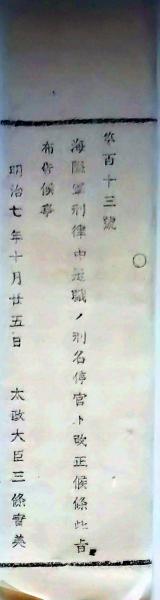 第百十三號
海陸軍刑律中退職ノ刑名停官ト改正候條此旨
布告候事
明治七年十月廿五日 太政大臣三條實美